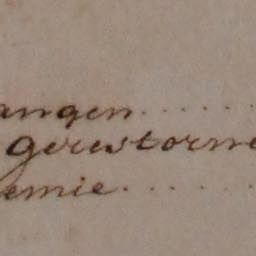 angen........
gerestorne
emie........